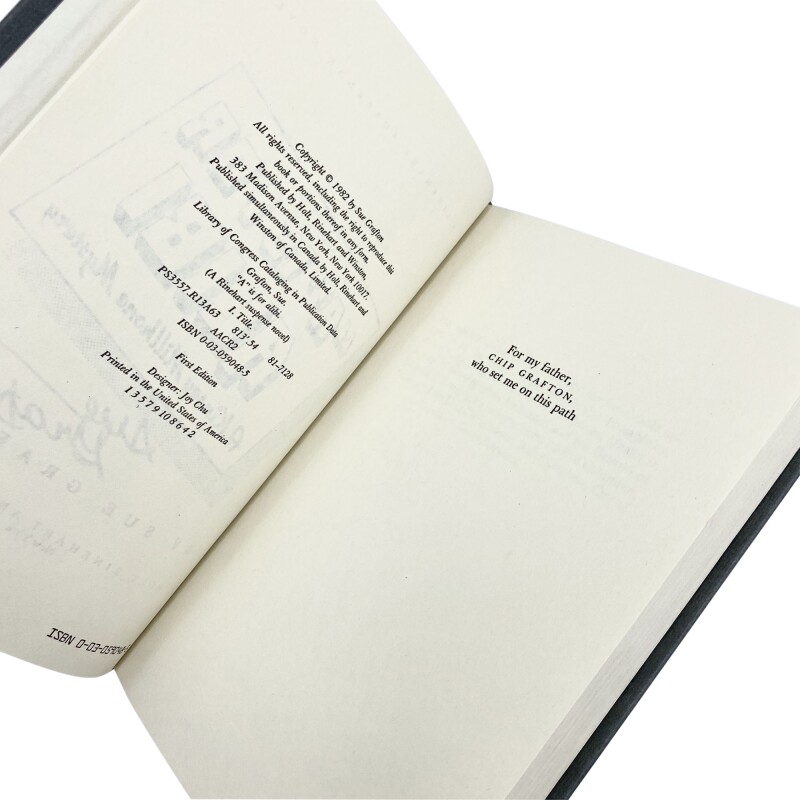 Copyright © 1982 by Sue Grafton
All rights reserved, including the right to reproduce this
book or portions thereof in any form.
Published by Holt, Rinehart and Winston,
383 Madison Avenue, New York, New York 10017.
Published simultaneously in Canada by Holt, Rinehart and
Winston of Canada, Limited.
Library of Congress Cataloging in Publication Data
Grafton, Sue.
"A" is for alibi.
(A Rinehart suspense novel)
I. Title.
PS3557.R13A63 813'.54 81-7128
AACR2
ISBN 0-03-059048-5
First Edition
Designer: Joy Chu
Printed in the United States of America
1 3 5 7 9 10 8 6 4 2
ISBN 0-03-059048
For my father,
CHIP GRAFTON,
who set me on this path